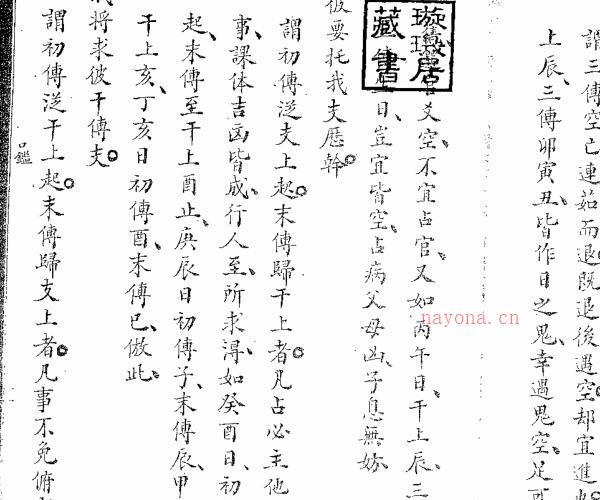 謂三傳空亡連茹而退既退後遇空却宜進
上辰、三傳卯寅丑、皆作日之鬼、幸遇鬼空、足可
官爻空、不宜占官、又如丙午日、干上辰、三
日、豈宜皆空、占病父母凶、子息無妨
璇璣居
藏書
彼要托我支歷幹。
謂初傳從支上起。末傳歸干上者。凡占必主他
事、課体吉凶皆成、行人至、所求得、如癸酉日、初
起、末傳至干上酉止、庚辰日初傳子、末傳辰、甲
干上亥、丁亥日初傳酉、末傳巳、倣此、
我將求彼干傳支。
謂初傳從干上起。末傳歸支上者。凡事不免俯
鑑
nayona.cn